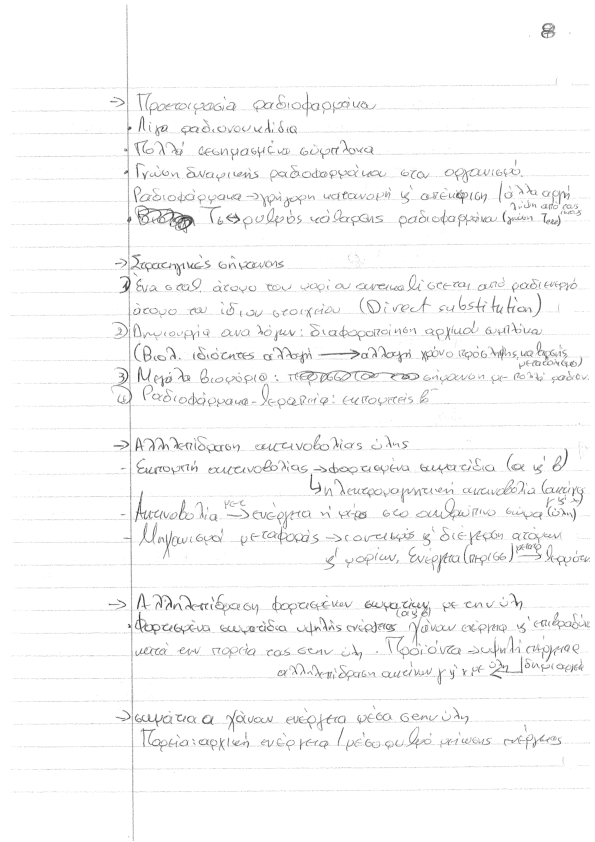 8
→ Προετοιμασία ραδιοφαρμάκων
• Λίγα ραδιονουκλίδια
• Πολλά σεσημασμένα σύμπλοκα
• Γνώση δυναμικής ραδιοφαρμάκου στον οργανισμό.
Ραδιοφάρμακα → γρήγορη κατανομή ς' απέκκριση / άλλα αργή
• Τε ↔ ρυθμός κάθαρσης ραδιοφαρμάκου (γνώση Τeff)
→ Στρατηγικές σήμανσης
1) Ένα σταθ. άτομο του μορίου αντικαθίσταται από ραδιενεργό
άτομο του ίδιου στοιχείου (Direct substitution)
2) Δημιουργία αναλόγων: διαφοροποίηση αρχικού
(Βιολ. ιδιότητες αλλαγή → αλλαγή χρόνο πρόσληψης, κάθαρσης
μεταβολισμό)
3) Μεγάλα βιομόρια: σήμανση με πολλά ραδιον.
4) Ραδιοφάρμακα - θεραπεία: εκπομπείς β⁻
→ Αλληλεπίδραση ακτινοβολίας ύλης
- Εκπομπή ακτινοβολίας → φορτισμένα σωματίδια (α ς' β)
↳ ηλεκτρομαγνητική ακτινοβολία (ακτίνες
γ ς' χ)
- Ακτινοβολία → ενέργεια ή στο ανθρώπινο σώμα (ύλη)
- Μηχανισμοί μεταφοράς → ιοντισμός ς' διέγερση ατόμων
ς' μορίων, Ενέργεια (περισσ) → θερμότητα
→ Αλληλεπίδραση φορτισμένων σωματίων (α ς' β) με την ύλη
• Φορτισμένα σωματίδια υψηλής ενέργειας χάνουν ενέργεια ς' επιβραδύν
κατά την πορεία τους στην ύλη. Προϊόντα → υψηλή ενέργεια
αλληλεπίδραση ακτίνων γ ς' χ με ύλη
→ σωμάτια α χάνουν ενέργεια μέσα στην ύλη
Πορεία: αρχική ενέργεια / μέσο ρυθμό μείωσης ενέργειας